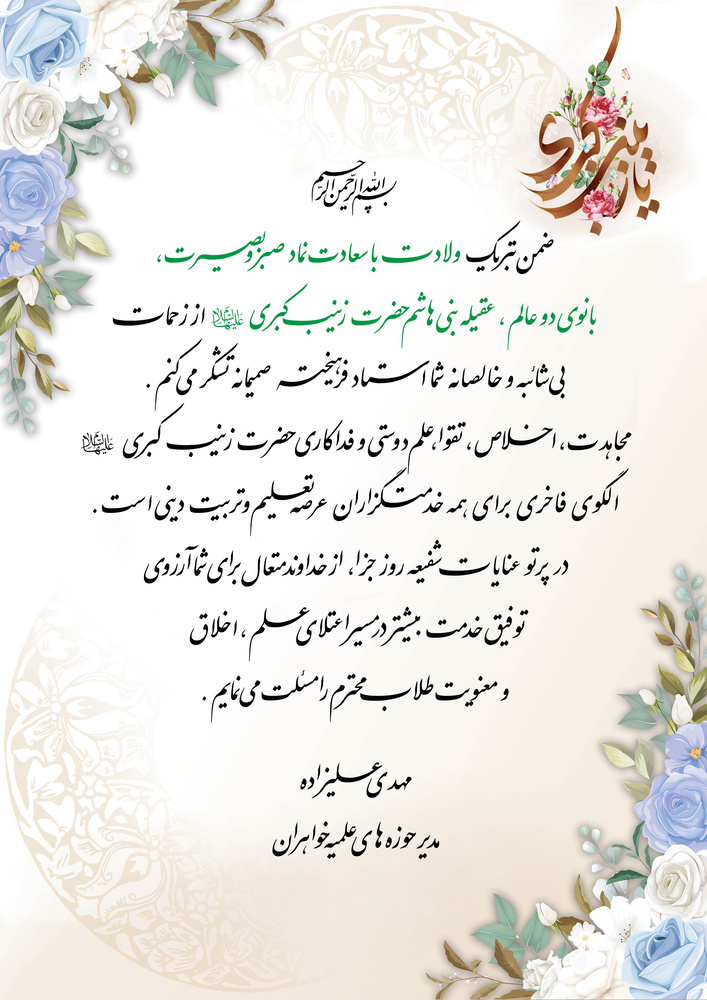 یا زینب کبری
بسم الله الرحمن الرحیم
ضمن تبریک ولادت با سعادت نماد صبر و بصیرت،
بانوی دو عالم ، عقیله بنی هاشم حضرت زینب کبری علیها السلام از زحمات
بی شائبه و خالصانه شما استاد فرهیخته صمیمانه تشکر می کنم .
مجاهدت، اخلاص، تقوا، علم دوستی و فداکاری حضرت زینب کبری علیها السلام
الگوی فاخری برای همه خدمتگزاران عرصه تعلیم و تربیت دینی است .
در پرتو عنایات شفیعه روز جزا، از خداوند متعال برای شما آرزوی
توفیق خدمت بیشتر در مسیر اعتلای علم ، اخلاق
و معنویت طلاب محترم را مسئلت می نمایم .
مهدی علیزاده
مدیر حوزه های علمیه خواهران